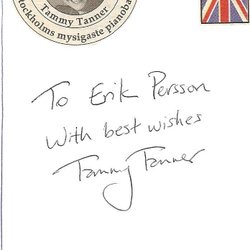 Tammy Tanner
Stockholms mysigaste pianoba
To Erik Persson
With best wishes
Tammy Tanner